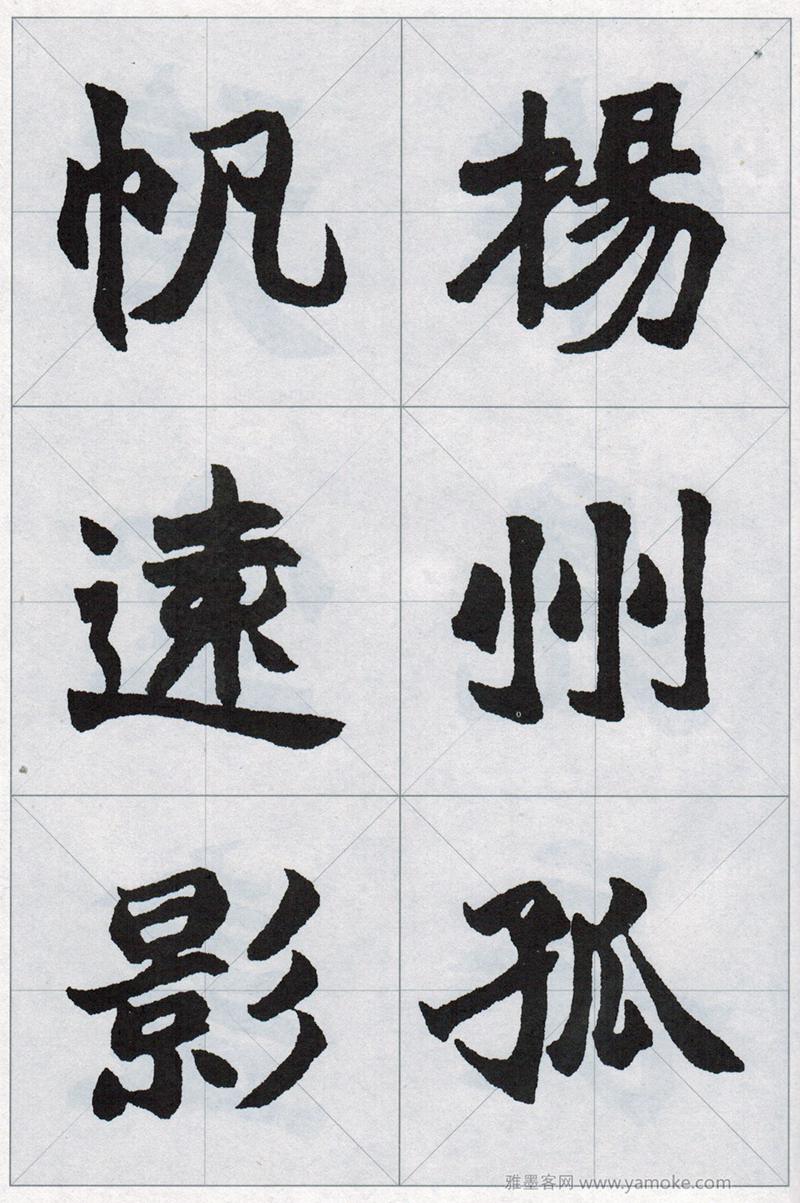 楊州孤
帆遠影
雅墨客网 www.yamoke.com